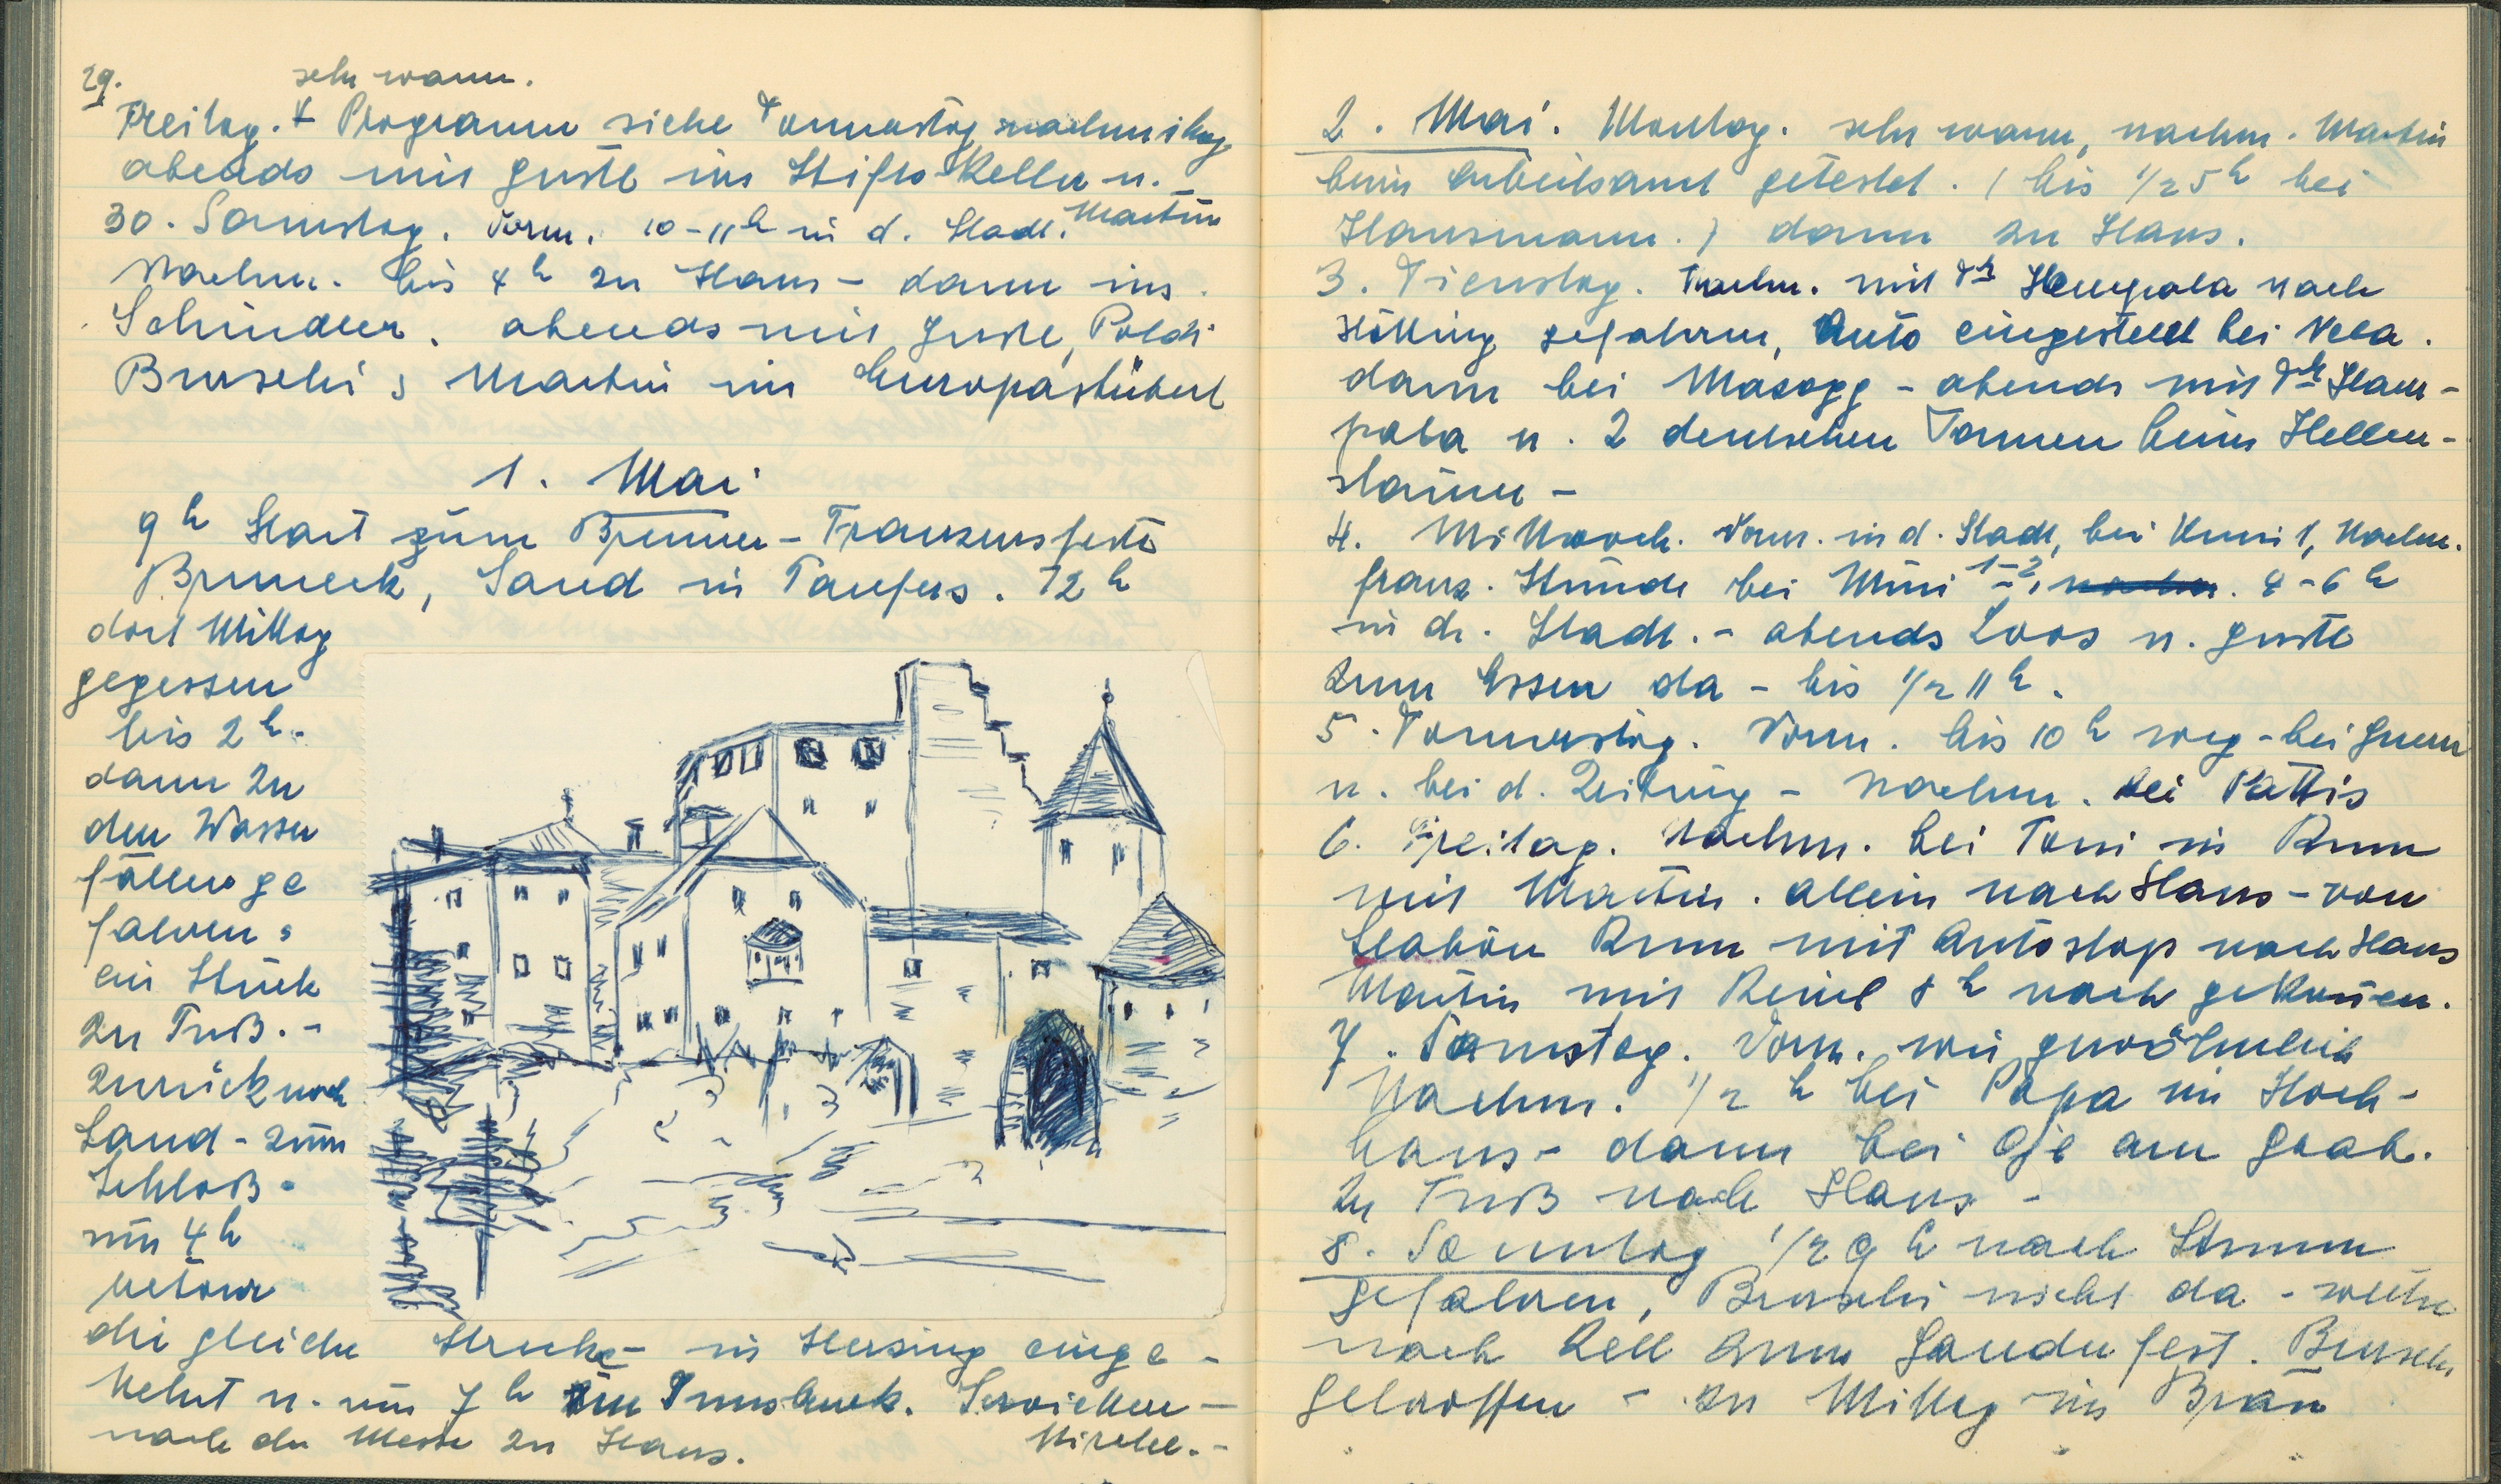 29. sehr warm.
Freitag. + Programm siehe Donnerstag nachmittag
abends mit Gustl im Stiftskeller u.
Martin
30. Samstag. Vorm. 10-11h in d. Stadt.
Nachm. bis 4h zu Haus - dann ins
Schindler. abends mit Gustl, Poldi
Burschi, Martin im Europastüberl
1. Mai
9h Start zum Brenner - Franzensfeste
Bruneck, Sand in Taufers. 12h
dort Mittag
gegessen
bis 2h -
dann zu
den Wasser
fällen ge
fahren,
ein Stück
zu Fuß. -
zurück nach
Sand - zum
Schloß -
um 4h
retour
die gleiche Strecke - in Sterzing einge -
kehrt u. um 7h in Innsbruck. Serviten -
nach der Messe zu Haus. kirche. -
2. Mai. Montag. sehr warm, nachm. Martin
beim Arbeitsamt getestet. (bis 1/2 5h bei
Hausmann.) dann zu Haus.
3. Dienstag. Nachm. mit Dr nach
Hötting gefahren, Auto eingestellt bei
dann bei - abends mit Dr
u. 2 deutschen Damen beim Hellen -
stainer -
4. Mittwoch. Vorm. in d. Stadt, bei Nachm.
franz. Stunde bei 1-2, 4-6h
in d. Stadt. - abends Loos u. Gustl
zum Essen da - bis 1/2 11h.
5. Donnerstag. Vorm. bis 10h weg - bei
u. bei d. Zeitung - Nachm. bei Pattis
6. Freitag. Nachm. bei Toni in Rum
mit Martin. allein nach Haus - von
Station Rum mit Autostop nach Haus
Martin mit 8h nach gekommen.
7. Samstag. Vorm. wie gewöhnlich
Nachm. 1/2 h bei Papa im Hoch -
haus - dann bei am Grab.
zu Fuß nach Haus -
8. Sonntag 1/2 9h nach Stumm
gefahren, Burschi nicht da - weiter
nach Zell zum Gauder fest. Burschi
getroffen - zu Mittag im Bräu